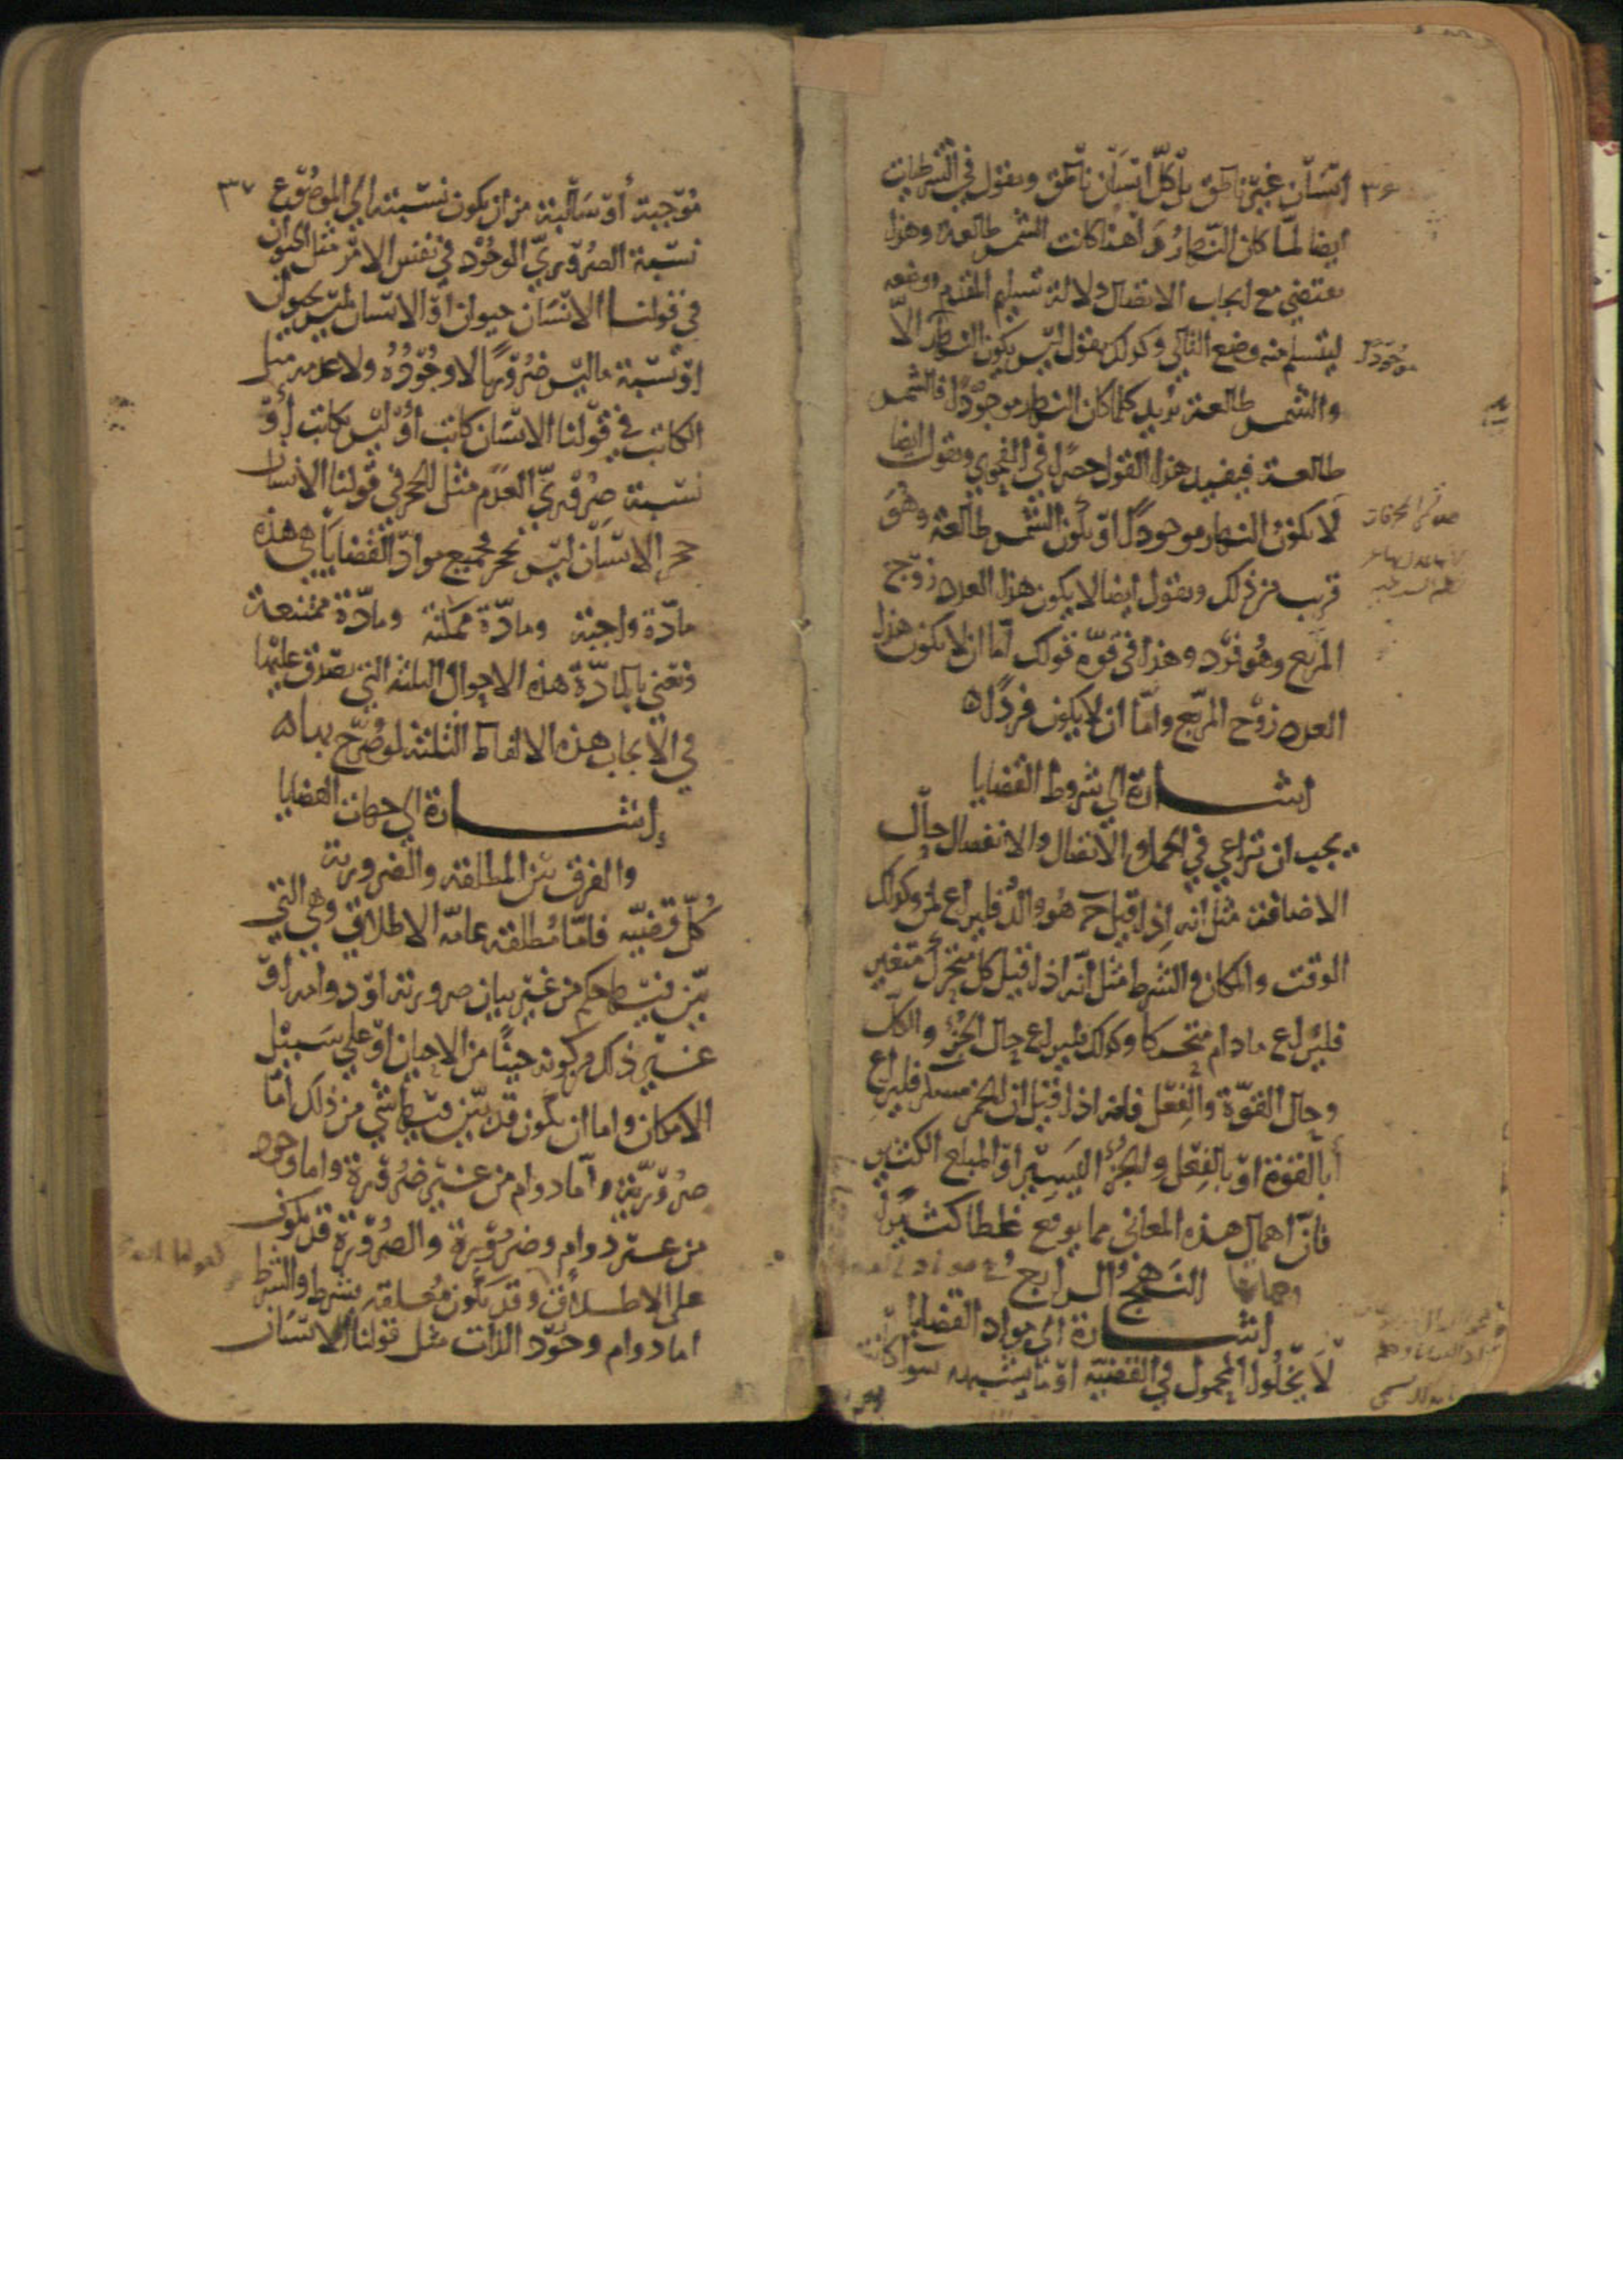 ٣۶
انسان غير ناطق بل كل انسان ناطق ونقول في الشرطيات
ايضا لما كان النهار راهنا كانت الشمس طالعة وهذا
يقتضي مع ايجاب الاتصال دلالة تسليم المقدم ووضعه
ليتسلم منه وضع التالي وكذلك يقول ليس يكون النهار الا
موجودًا
والشمس طالعة يريد كلما كان النهار موجودًا فالشمس
طالعة فيفيد هذا القول حصرا في الفحوى ونقول ايضا
لا يكون النهار موجودا او يكون الشمس طالعة وهو
قريب من ذلك ونقول ايضا لا يكون هذا العدد زوج
المربع وهو فرد وهذا في قوة قولك اما ان لا يكون هذا
العدد زوج المربع واما ان لا يكون فردا ه
اشارة الى شروط القضايا
يجب ان تراعي في الحمل والاتصال والانفصال حال
الاضافة مثل انه اذا قيل ج هو والد فليراع لمن وكذلك
الوقت والمكان والشرط مثل انه اذا قيل كل متحرك متغير
فليراع مادام متحركا وكذلك فليراع حال الجزء والكل
وحال القوة والفعل فانه اذا قيل ان الخمر مسكر فليراع
أبالقوة او بالفعل والجزء اليسير او المبلغ الكثير
فان اهمال هذه المعاني مما يوقع غلطا كثيرًا
النهج الرابع
اشارة الى مواد القضايا
لا يخلوا المحمول في القضية او ما يشبهه سوا كانت
٣٧
موجبة أو سالبة من ان يكون نسبته الى الموضوع
نسبة الضروري الوجود في نفس الامر مثل الحيوان
في قولنا الانسان حيوان او الانسان ليس بحيوان
او نسبة ما ليس ضروريا لا وجوده ولا عدمه مثل
الكاتب في قولنا الانسان كاتب أو ليس بكاتب أو
نسبة ضروري العدم مثل الحجر في قولنا الانسان
حجر الانسان ليس بحجر فجميع مواد القضايا هي هذه
مادة واجبة ومادة ممكنة ومادة ممتنعة
ونعني بالمادة هذه الاحوال الثلثة التي تصدق عليها
في الايجاب هذه الالفاظ الثلثة لو صرح بها ه
إشارة الى جهات القضايا
والفرق بين المطلقة والضرورية
كل قضية فاما مطلقة عامة الاطلاق وهي التي
بين فيها حكم من غير بيان ضرورته او دوامه او
غير ذلك من كونه حينًا من الاحيان او على سبيل
الامكان واما ان يكون قد بين فيها شي من ذلك اما
ضرورية واما دوام من غير ضرورة واما وجود
من غير دوام وضرورة والضرورة قد يكون
على الاطلاق وقد يكون معلقة بشرط والشرط
اما دوام وجود الذات مثل قولنا الانسان